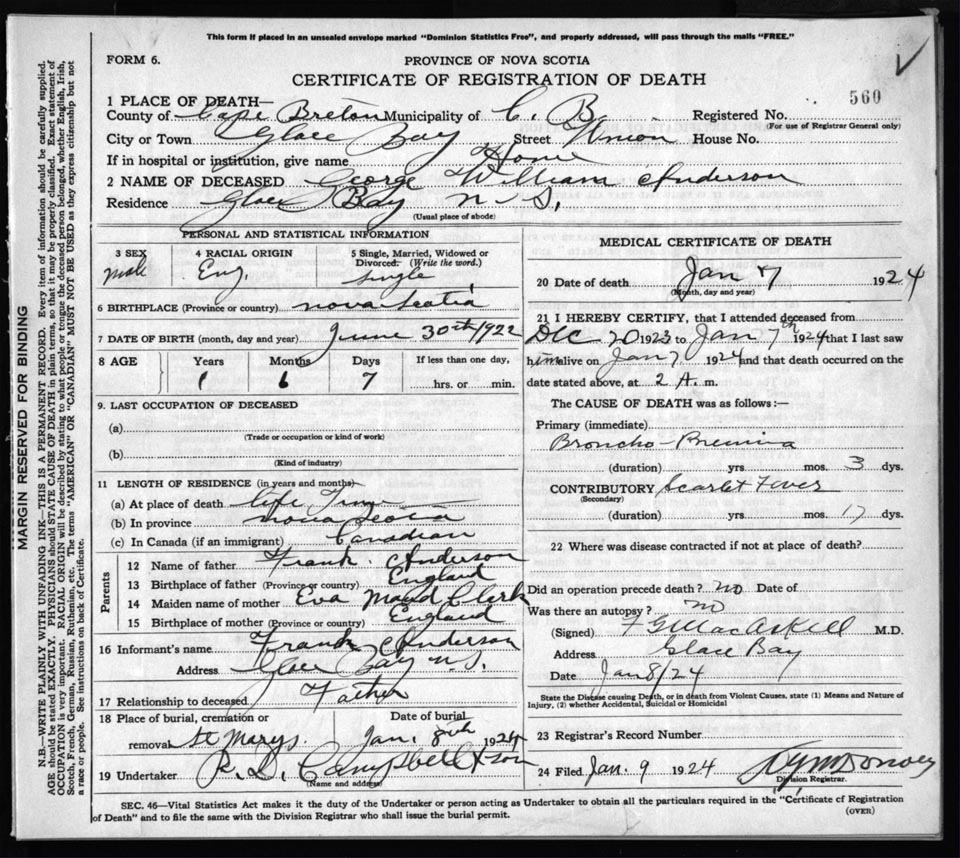 This form if placed in an unsealed envelope marked "Dominion Statistics Free", and properly addressed, will pass through the mails "FREE."
FORM 6.
PROVINCE OF NOVA SCOTIA
CERTIFICATE OF REGISTRATION OF DEATH
560
1 PLACE OF DEATH—
County of Cape Breton Municipality of C. B. Registered No.
(For use of Registrar General only)
City or Town Glace Bay Street Union House No.
If in hospital or institution, give name Home
2 NAME OF DECEASED George William Anderson
Residence Glace Bay N.S.
(Usual place of abode)
PERSONAL AND STATISTICAL INFORMATION
3 SEX male
4 RACIAL ORIGIN Eng.
5 Single, Married, Widowed or Divorced. (Write the word.) single
6 BIRTHPLACE (Province or country) Nova Scotia
7 DATE OF BIRTH (month, day and year) June 30th/1922
8 AGE Years Months Days If less than one day,
1 6 7 hrs. or min.
9. LAST OCCUPATION OF DECEASED
(a)
(Trade or occupation or kind of work)
(b)
(Kind of industry)
11 LENGTH OF RESIDENCE (in years and months)
(a) At place of death Life Time
(b) In province Nova Scotia
(c) In Canada (if an immigrant) Canadian
Parents
12 Name of father Frank Anderson
13 Birthplace of father (Province or country) England
14 Maiden name of mother Eva Maud Clerk
15 Birthplace of mother (Province or country) England
16 Informant's name Frank Anderson
Address Glace Bay N.S.
17 Relationship to deceased Father
18 Place of burial, cremation or Date of burial
removal St Marys Jan. 8th 1924
19 Undertaker R. D. Campbell & Son
(Name and address)
MEDICAL CERTIFICATE OF DEATH
20 Date of death Jan 7 1924
(Month, day and year)
21 I HEREBY CERTIFY, that I attended deceased from
Dec 20 1923 to Jan 7th 1924 that I last saw
him alive on Jan 7 1924 and that death occurred on
date stated above, at 2 A. m.
The CAUSE OF DEATH was as follows:—
Primary (immediate)
Broncho-Pneumina
(duration) yrs. mos. 3 dys.
CONTRIBUTORY Scarlet Fever
(Secondary)
(duration) yrs. mos. 17 dys.
22 Where was disease contracted if not at place of death?
Did an operation precede death? no Date of
Was there an autopsy? no
(Signed) F G MacAskill M.D.
Address Glace Bay
Date Jan 8/24
State the Disease causing Death, or in death from Violent Causes, state (1) Means and Nature of
Injury, (2) whether Accidental, Suicidal or Homicidal
23 Registrar's Record Number
24 Filed Jan. 9 1924
Division Registrar.
SEC. 46—Vital Statistics Act makes it the duty of the Undertaker or person acting as Undertaker to obtain all the particulars required in the "Certificate of Registration
of Death" and to file the same with the Division Registrar who shall issue the burial permit.
(OVER)
MARGIN RESERVED FOR BINDING
N.B.—WRITE PLAINLY WITH UNFADING INK—THIS IS A PERMANENT RECORD. Every item of information should be carefully supplied.
AGE should be stated EXACTLY. PHYSICIANS should STATE CAUSE OF DEATH in plain terms, so that it may be properly classified. Exact statement of
OCCUPATION is very important. RACIAL ORIGIN will be described by stating to what people or tongue the deceased person belonged, whether English, Irish,
Scotch, French, German, Russian, Ruthenian, etc. The terms "AMERICAN" OR "CANADIAN" MUST NOT BE USED as they express citizenship but not
a race or people. See instructions on back of Certificate.